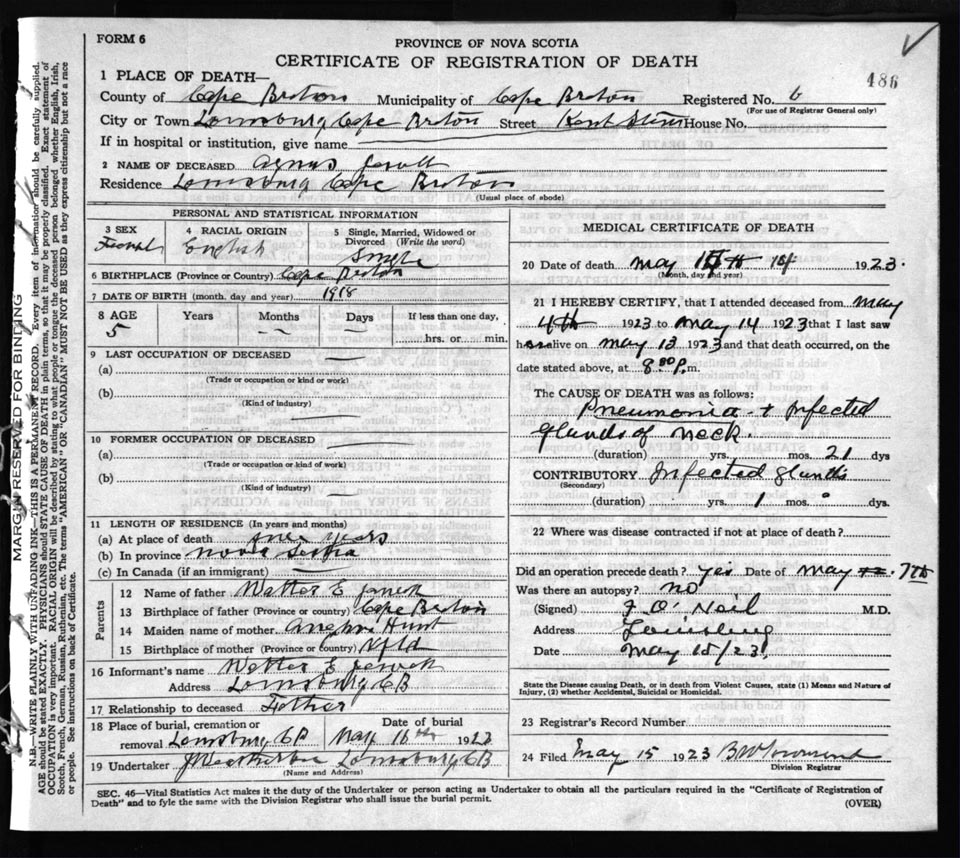 FORM 6
PROVINCE OF NOVA SCOTIA
CERTIFICATE OF REGISTRATION OF DEATH
486
1 PLACE OF DEATH—
County of Cape Breton Municipality of Cape Breton Registered No. 6
(For use of Registrar General only)
City or Town Louisburg Cape Breton Street Kent Street House No.
If in hospital or institution, give name
2 NAME OF DECEASED Agnus
Residence Louisburg Cape Breton
(Usual place of abode)
PERSONAL AND STATISTICAL INFORMATION
3 SEX 4 RACIAL ORIGIN 5 Single, Married, Widowed or Divorced (Write the word)
Female English Single
6 BIRTHPLACE (Province or Country) Cape Breton
7 DATE OF BIRTH (month, day and year) 1918
8 AGE Years Months Days If less than one day,
5 — — hrs. or min.
9 LAST OCCUPATION OF DECEASED —
(a)
(Trade or occupation or kind or work)
(b)
(Kind of industry)
10 FORMER OCCUPATION OF DECEASED
(a)
(Trade or occupation or kind or work)
(b)
(Kind of industry)
11 LENGTH OF RESIDENCE (In years and months)
(a) At place of death years
(b) In province Nova Scotia
(c) In Canada (if an immigrant) —
Parents
12 Name of father Walter E
13 Birthplace of father (Province or country) Cape Breton
14 Maiden name of mother Hunt
15 Birthplace of mother (Province or country) Nfld
16 Informant's name Walter E
Address Louisburg CB
17 Relationship to deceased Father
18 Place of burial, cremation or Date of burial
removal Louisburg CB May 16th 1923
19 Undertaker Louisburg CB
(Name and Address)
MEDICAL CERTIFICATE OF DEATH
20 Date of death May 14 1923.
(Month, day and year)
21 I HEREBY CERTIFY, that I attended deceased from May
4th 1923 to May 14 1923 that I last saw
h alive on May 13 1923 and that death occurred, on the
date stated above, at 8.00 P.m.
The CAUSE OF DEATH was as follows:
Pneumonia + Infected
glands of neck.
(duration) yrs. mos. 21 dys
CONTRIBUTORY Infected glands
(Secondary)
(duration) yrs. 1 mos. dys.
22 Where was disease contracted if not at place of death?
Did an operation precede death? yes Date of May 7th
Was there an autopsy? no
(Signed) F O'Neil M.D.
Address Louisburg
Date May 15/23
State the Disease causing Death, or in death from Violent Causes, state (1) Means and Nature of
Injury, (2) whether Accidental, Suicidal or Homicidal.
23 Registrar's Record Number
24 Filed May 15 1923
Division Registrar
SEC. 46—Vital Statistics Act makes it the duty of the Undertaker or person acting as Undertaker to obtain all the particulars required in the "Certificate of Registration of
Death" and to fyle the same with the Division Registrar who shall issue the burial permit.
(OVER)
MARGIN RESERVED FOR BINDING
N.B.—WRITE PLAINLY WITH UNFADING INK—THIS IS A PERMANENT RECORD. Every item of information should be carefully supplied.
AGE should be stated EXACTLY. PHYSICIANS should STATE CAUSE OF DEATH in plain terms, so that it may be properly classified. Exact statement of
OCCUPATION is very important. RACIAL ORIGIN will be described by stating to what people or tongue the deceased person belonged whether English, Irish,
Scotch, French, German, Russian, Ruthenian, etc. The terms "AMERICAN" OR "CANADIAN" MUST NOT BE USED as they express citizenship but not a race
or people. See instructions on back of Certificate.